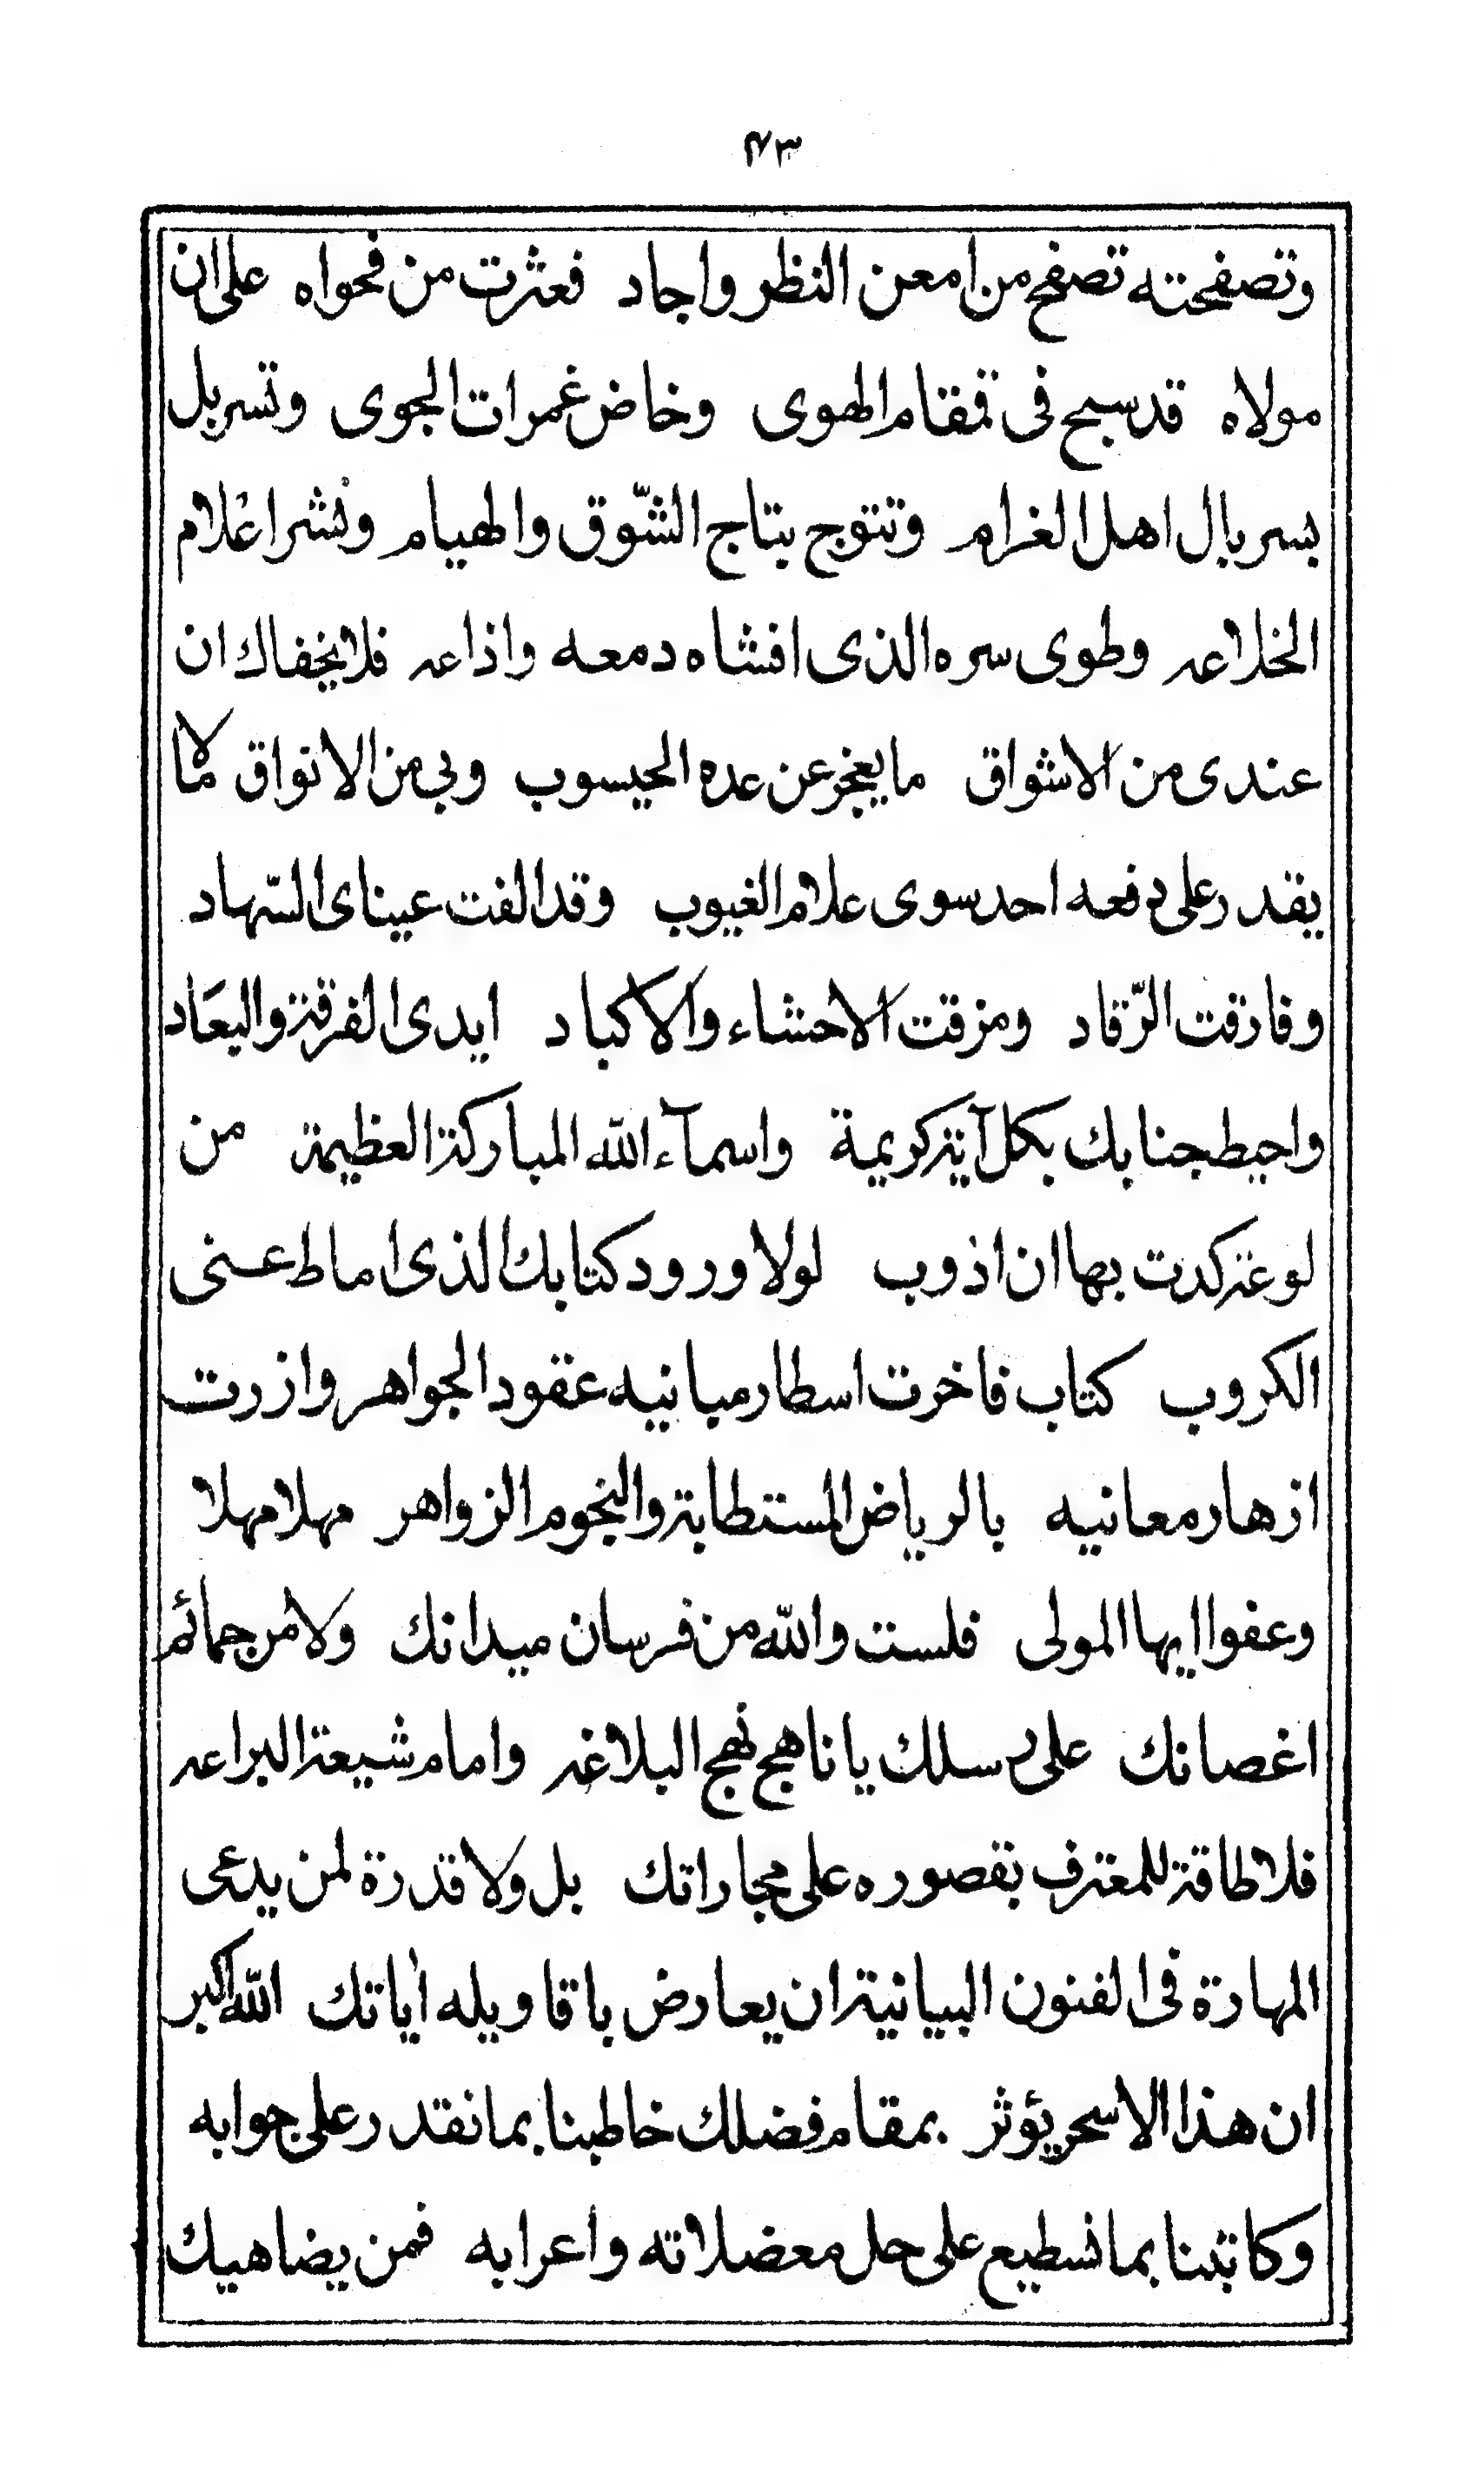 ٤٣
وتصفحته تصفح من امعن النظر واجاد فعثرت من فحواه على ان
مولاه قد سبح في قمقام الهوى وخاض غمرات الجوى وتسربل
بسربال اهل الغرام وتتوج بتاج الشّوق والهيام ونشر اعلام
الخلاعه وطوى سره الذى افشاه دمعه واذاعه فلا يخفاك ان
عندى من الاشواق ما يعجز عن عده الحيسوب وبي من الاتواق مالا
يقدر على دفعه احد سوى علام الغيوب وقد الفت عيناى السّهاد
وفارقت الرّقاد ومزقت الاحشاء والاكباد ايدى الفرقة والبعَاد
واحيط جنابك بكل آية كريمة واسمآء الله المباركة العظيمة من
لوعة كدت بها ان اذوب لولا ورود كتابك الذى اماط عنى
الكروب كتاب فاخرت اسطار مبانيه عقود الجواهر وازرت
ازهار معانيه بالرياض المستطابة والنجوم الزواهر مهلا مهلا
وعفوا ايها المولى فلست والله من فرسان ميدانك ولا من حمائم
اغصانك على رسلك يا ناهج نهج البلاغه وامام شيعة البراعه
فلا طاقة للمعترف بقصوره على مجاراتك بل ولا قدرة لمن يدعى
المهارة فى الفنون البيانية ان يعارض باقاويله اياتك الله اكبر
ان هذا الا سحر يؤثر بمقام فضلك خاطبنا بما نقدر على جوابه
وكاتبنا بما نسطيع على حل معضلاته واعرابه فمن يضاهيك